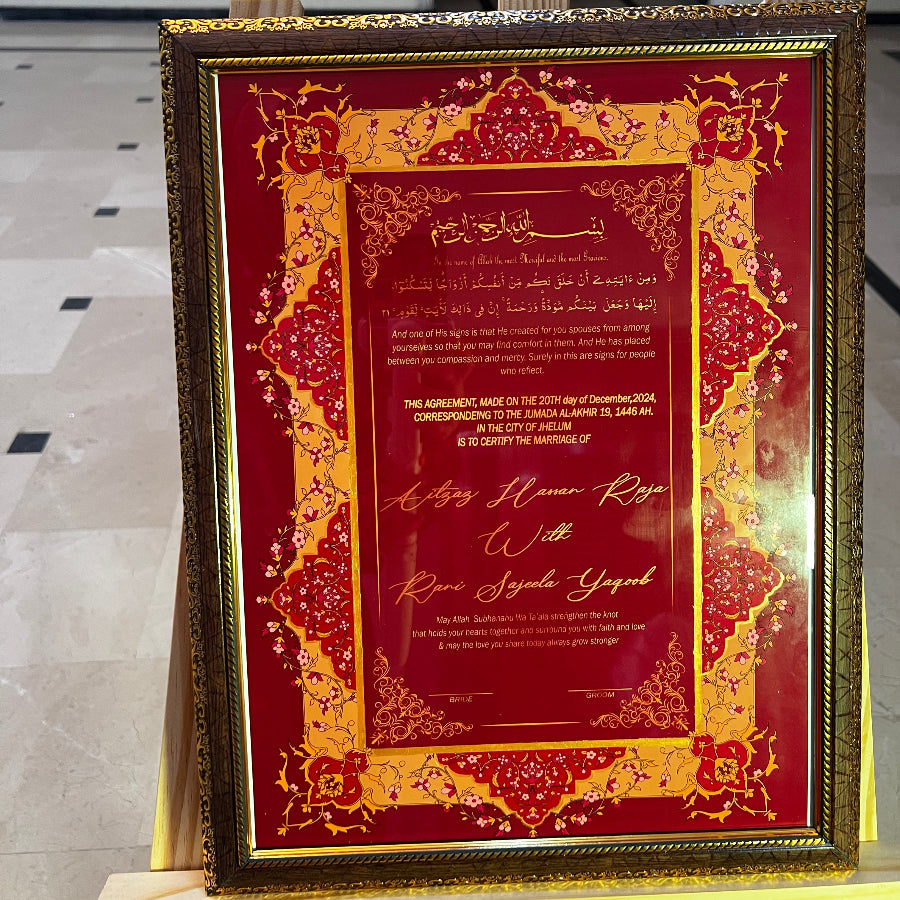 بسم الله الرحمن الرحيم
In the name of Allah the most Merciful and the most Gracious.
وَمِنْ ءَايَـٰتِهِۦٓ أَنْ خَلَقَ لَكُم مِّنْ أَنفُسِكُمْ أَزْوَٰجًا لِّتَسْكُنُوٓا۟
إِلَيْهَا وَجَعَلَ بَيْنَكُم مَّوَدَّةً وَرَحْمَةً ۚ إِنَّ فِى ذَٰلِكَ لَـَٔايَـٰتٍ لِّقَوْمٍ ٢١
And one of His signs is that He created for you spouses from among
yourselves so that you may find comfort in them. And He has placed
between you compassion and mercy. Surely in this are signs for people
who reflect.
THIS AGREEMENT, MADE ON THE 20TH day of December,2024,
CORRESPONDEING TO THE JUMADA AL-AKHIR 19, 1446 AH.
IN THE CITY OF JHELUM
IS TO CERTIFY THE MARRIAGE OF
Aitzaz Hassan Raja
With
Rani Sajeela Yaqoob
May Allah Subhanahu Wa Ta'ala strengthen the knot
that holds your hearts together and surround you with faith and love
& may the love you share today always grow stronger
BRIDE GROOM